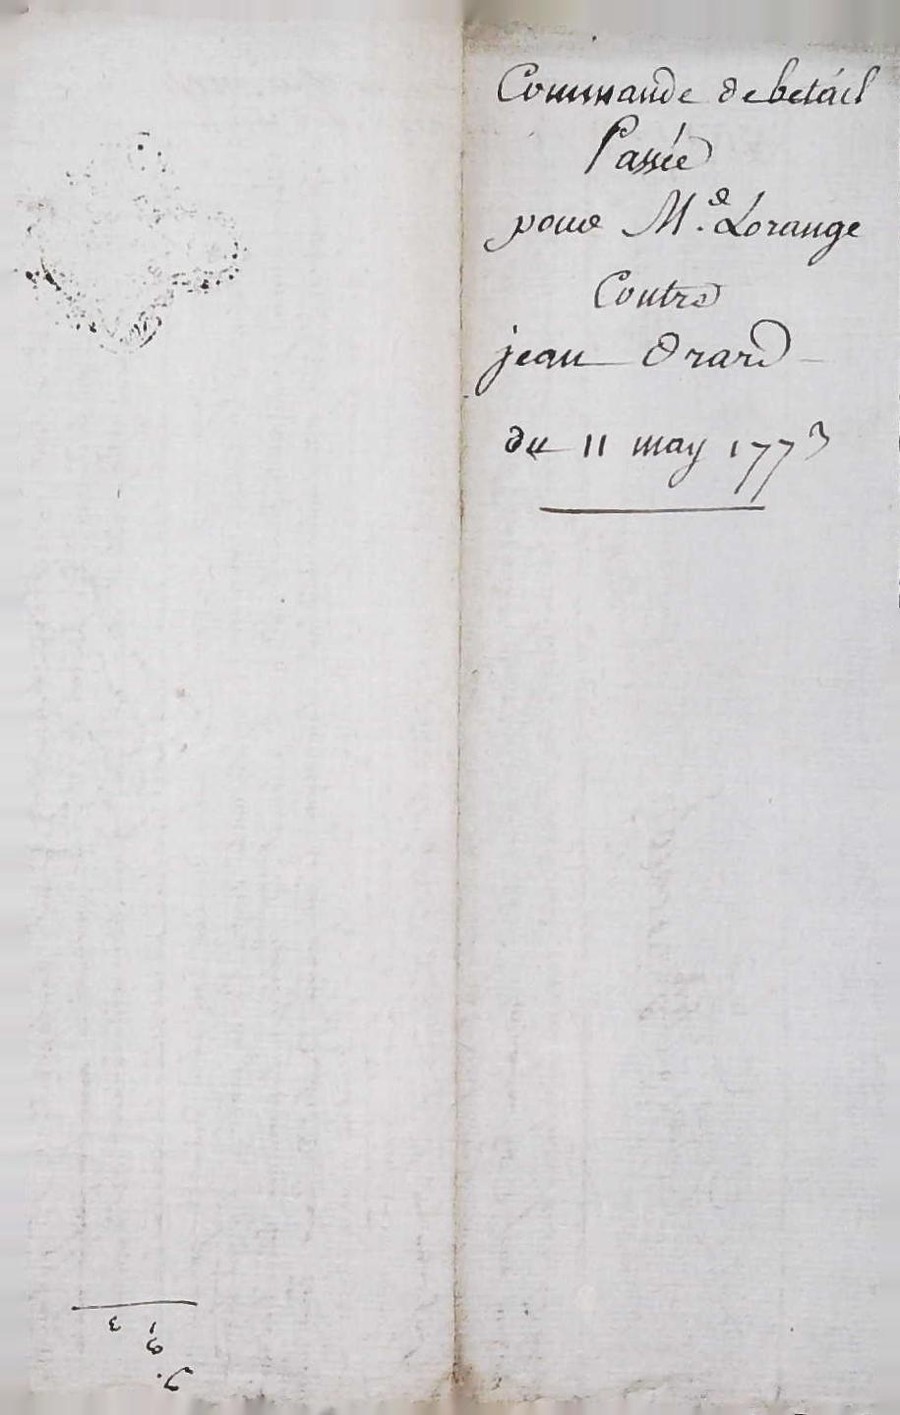 Commande de betail
Passée
pour M.r Lorange
Contre
jean Drard
du 11 may 1773